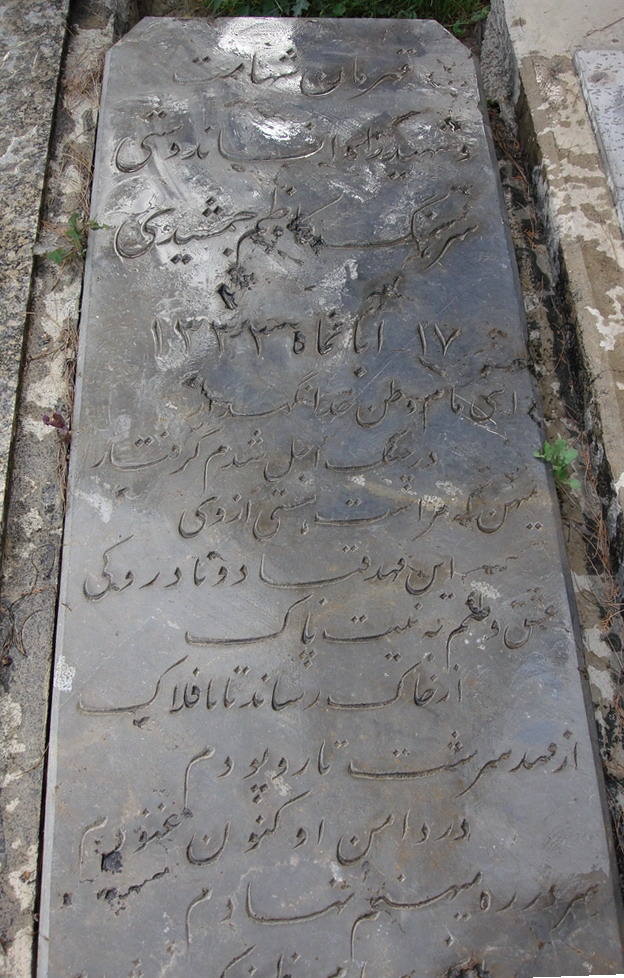 قهرمان شهامت
و شهید راه انساندوستی
سرهنگ کاظم جمشیدی
۱۷ آبانماه ۱۳۳۳
ای مام وطن خدا نگهدار
در چنگ اجل شدم گرفتار
میهن که مراست هستی از وی
این عهد فتاد و تا
عشق وطنم به نیت پاک
از خاک رساند تا بافلاک
از مهد سرشت تار و پودم
در دامن او کنون غنودم
سر در ره میهنم نهادم